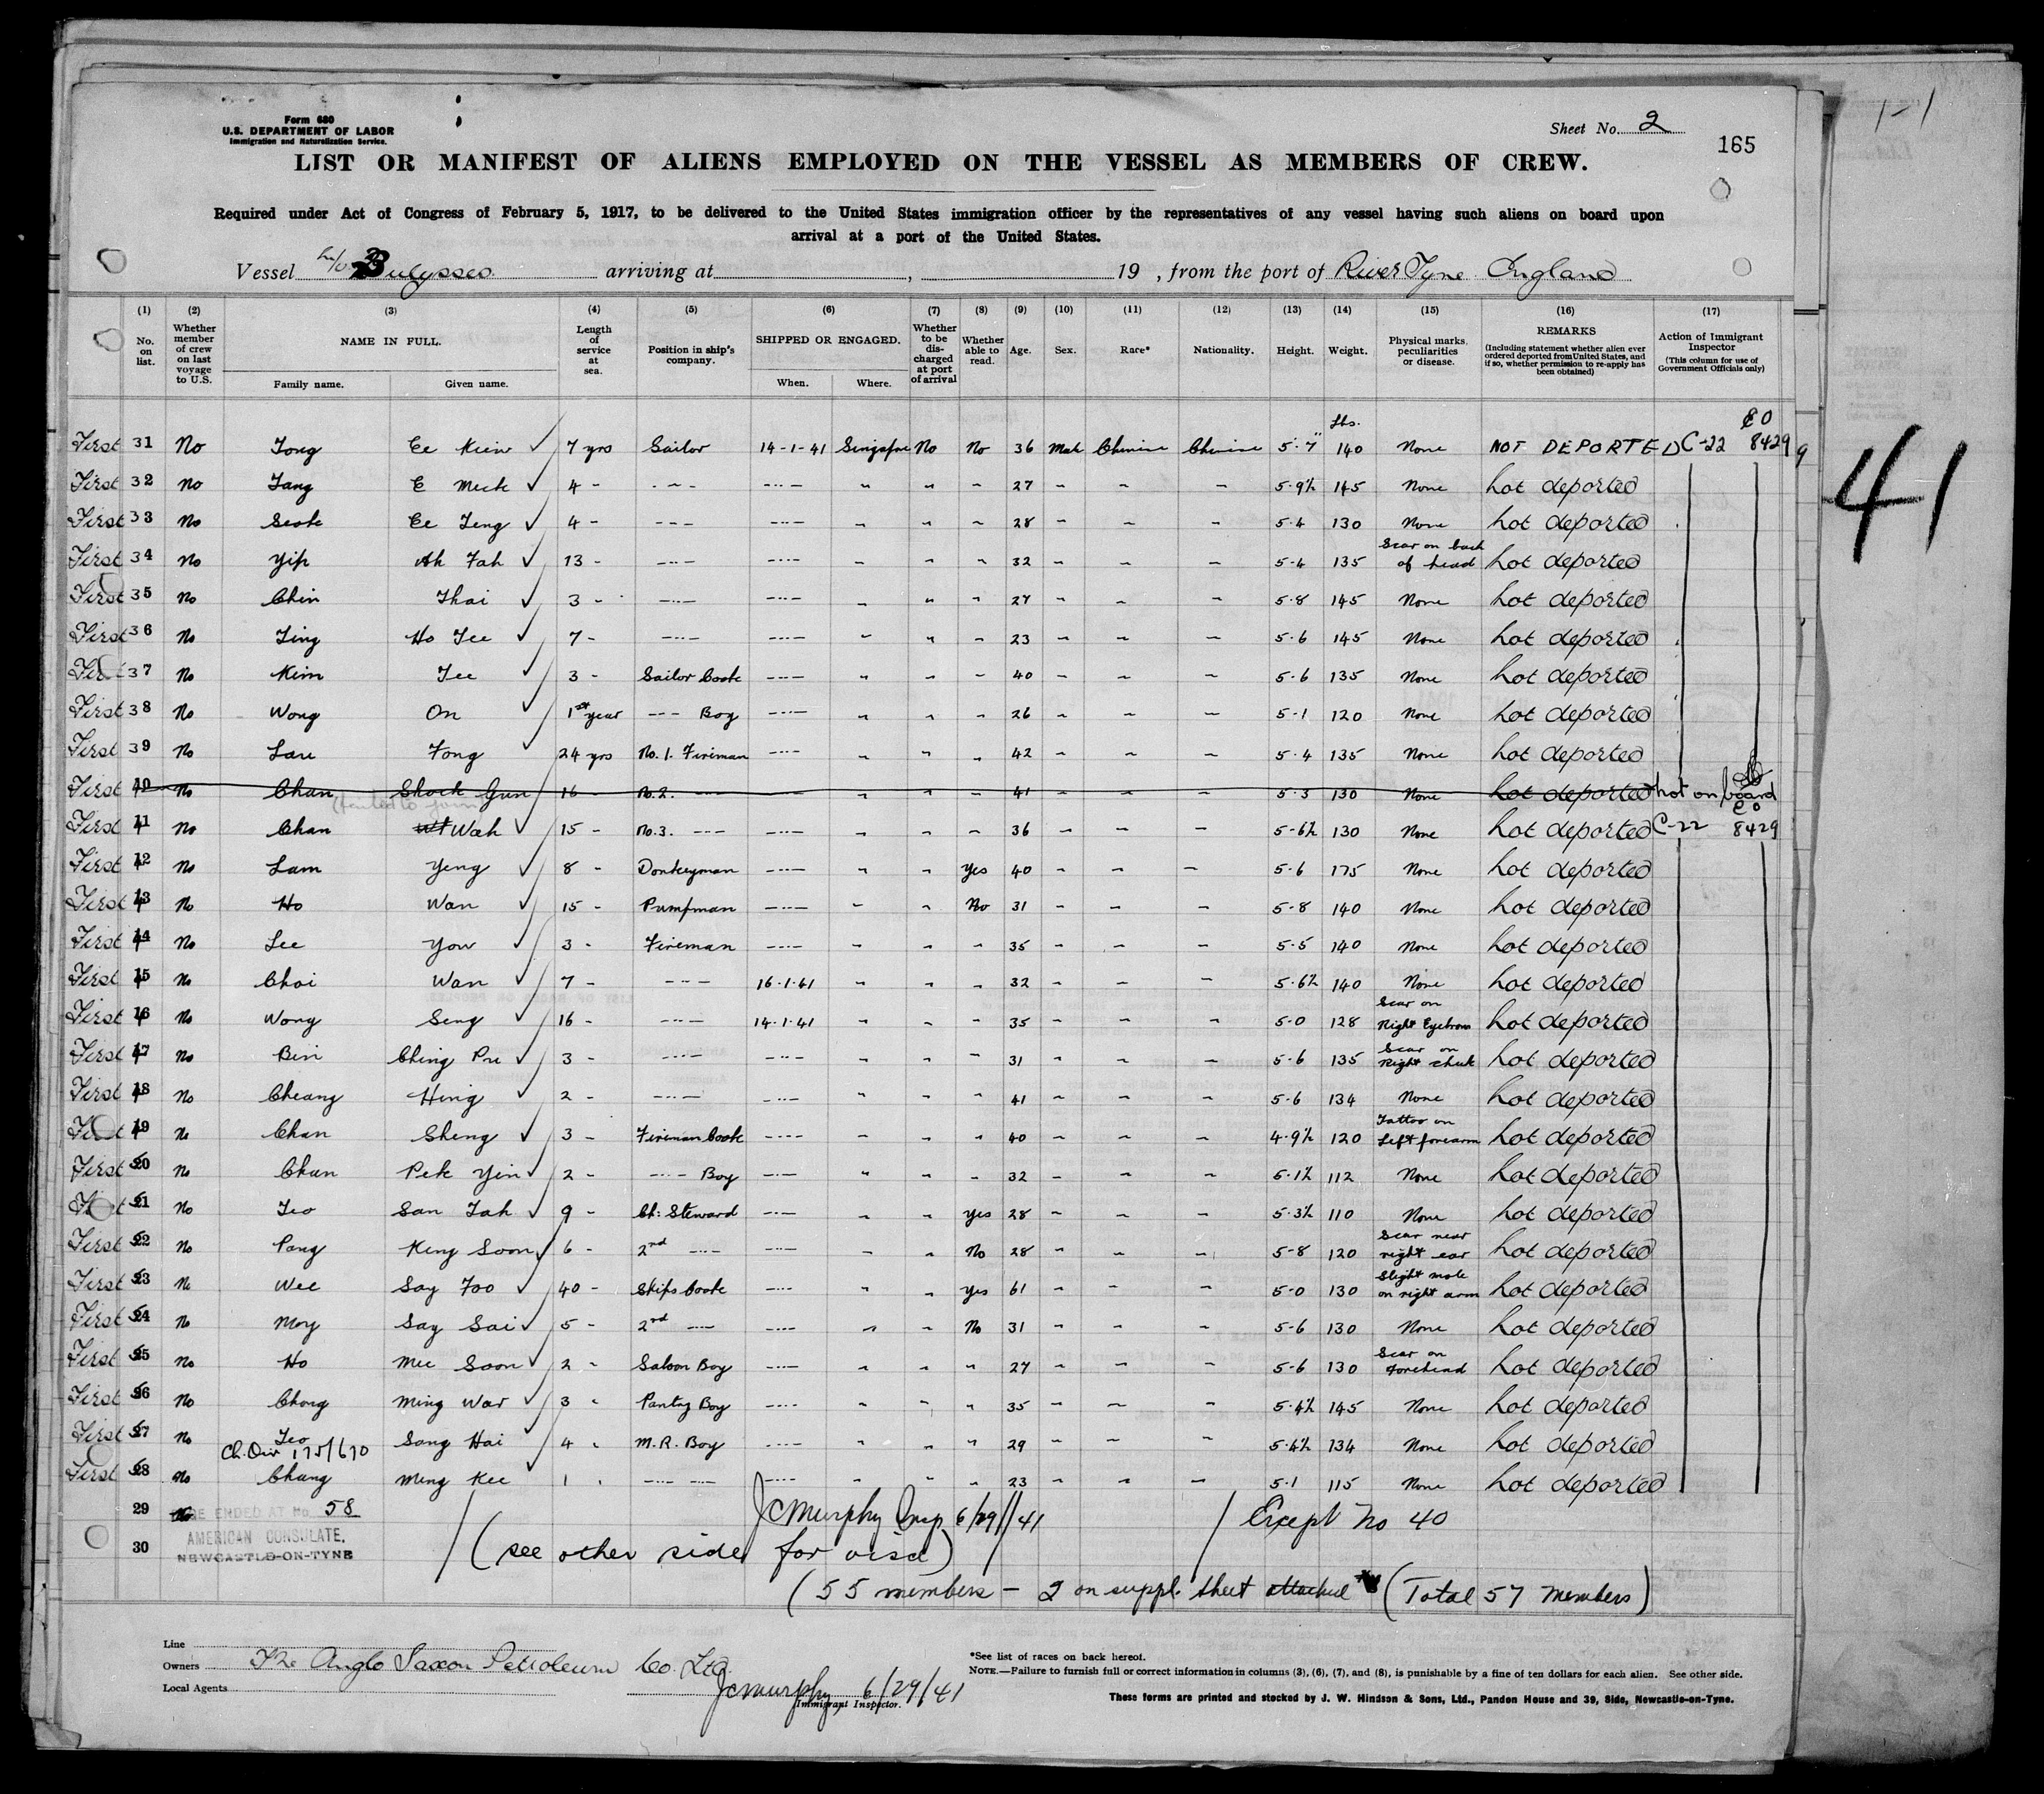 Form 680
U.S. DEPARTMENT OF LABOR
Immigration and Naturalization Service.
Sheet No. 2
165
1-1
LIST OR MANIFEST OF ALIENS EMPLOYED ON THE VESSEL AS MEMBERS OF CREW.
Required under Act of Congress of February 5, 1917, to be delivered to the United States immigration officer by the representatives of any vessel having such aliens on board upon
arrival at a port of the United States.
Vessel Bulysses arriving at , 19 , from the port of River Tyne England
(1) No. on list.
(2) Whether member of crew on last voyage to U.S.
(3) NAME IN FULL. Family name. Given name.
(4) Length of service at sea.
(5) Position in ship's company.
(6) SHIPPED OR ENGAGED. When. Where.
(7) Whether to be discharged at port of arrival
(8) Whether able to read.
(9) Age.
(10) Sex.
(11) Race*
(12) Nationality.
(13) Height.
(14) Weight.
(15) Physical marks, peculiarities or disease.
(16) REMARKS (Including statement whether alien ever ordered deported from United States, and if so, whether permission to re-apply has been obtained)
(17) Action of Immigrant Inspector (This column for use of Government Officials only)
lbs.
First 31 No Tong Ee Kiew ✓ 7 yrs Sailor 14-1-41 Singapore No No 36 Male Chinese Chinese 5'-7" 140 None NOT DEPORTED C-22 8429
First 32 No Tang E Meck ✓ 4 - - - - - - - - - - 27 - - - 5-9½ 145 None not deported
First 33 No Seok Ee Teng ✓ 4 - - - - - - - - - - 28 - - - 5-4 130 None not deported
First 34 No Yip Ah Fah ✓ 13 - - - - - - - - - - 32 - - - 5-4 135 Scar on back of head not deported
First 35 No Chin Thai ✓ 3 - - - - - - - - - - 27 - - - 5-8 145 None not deported
First 36 No Ting Ho Tee ✓ 7 - - - - - - - - - - 23 - - - 5-6 145 None not deported
First 37 No Kim Tee ✓ 3 - Sailor Cook - - - - - - - 40 - - - 5-6 135 None not deported
First 38 No Wong On ✓ 1st year - - - Boy - - - - - - - 26 - - - 5-1 120 None not deported
First 39 No Lau Fong ✓ 24 yrs No. 1. Fireman - - - - - - - 42 - - - 5-4 135 None not deported
First 40 No Chan Shock Gun 16 - No. 2. - - - - - - - 41 - - - 5-3 130 None not deported not on board
(failed to join)
First 41 No Chan Wah ✓ 15 - No. 3. - - - - - - - - - - 36 - - - 5-6½ 130 None not deported C-22 8429
First 42 No Lam Yeng ✓ 8 - Donkeyman - - - - - - Yes 40 - - - 5-6 175 None not deported
First 43 No Ho Wan ✓ 15 - Pumpman - - - - - - No 31 - - - 5-8 140 None not deported
First 44 No Lee Yow ✓ 3 - Fireman - - - - - - - 35 - - - 5-5 140 None not deported
First 45 No Choi Wan ✓ 7 - - - - 16-1-41 - - - 32 - - - 5-6½ 140 None not deported
First 46 No Wong Seng ✓ 16 - - - - 14-1-41 - - - 35 - - - 5-0 128 Scar on Right Eyebrow not deported
First 47 No Bin Ching Pu ✓ 3 - - - - - - - - - - 31 - - - 5-6 135 Scar on Right cheek not deported
First 48 No Cheang Hing ✓ 2 - - - - - - - - - - 41 - - - 5-6 134 None not deported
First 49 No Chan Sheng ✓ 3 - Fireman Cook - - - - - - - 40 - - - 4-9½ 120 Tattoo on Left forearm not deported
First 50 No Chan Pek Yin ✓ 2 - - - - Boy - - - - - - - 32 - - - 5-1½ 112 None not deported
First 51 No Teo San Tah ✓ 9 - Ch: Steward - - - - - Yes 28 - - - 5-3½ 110 None not deported
First 52 No Pang Keng Soon ✓ 6 - 2nd - - - - - - - - No 28 - - - 5-8 120 Scar near right ear not deported
First 53 No Wee Say Foo ✓ 40 - Ships Cook - - - - - Yes 61 - - - 5-0 130 Slight mole on right arm not deported
First 54 No Moy Say Sai ✓ 5 - 2nd - - - - - - - - No 31 - - - 5-6 130 None not deported
First 55 No Ho Mee Soon ✓ 2 - Saloon Boy - - - - - - - 27 - - - 5-6 130 Scar on Forehead not deported
First 56 No Chong Ming War ✓ 3 - Pantry Boy - - - - - - - 35 - - - 5-4½ 145 None not deported
First 57 No Teo Song Hai ✓ 4 - M.R. Boy - - - - - - - 29 - - - 5-4½ 134 None not deported
Ch. Div 175/670
First 58 No Chang Ming Kee 1 - - - - - - - - - - 23 - - - 5-1 115 None not deported
29 ENDED AT No. 58
AMERICAN CONSULATE,
NEWCASTLE-ON-TYNE
30
JCMurphy Insp 6/29/41 Except No 40
(see other side for visa)
(55 members - 2 on suppl. sheet attached (Total 57 Members)
41
Line
Owners The Anglo Saxon Petroleum Co. Ltd.
Local Agents
JCMurphy 6/29/41
Immigrant Inspector.
*See list of races on back hereof.
NOTE.—Failure to furnish full or correct information in columns (3), (6), (7), and (8), is punishable by a fine of ten dollars for each alien. See other side.
These forms are printed and stocked by J. W. Hindson & Sons, Ltd., Pandon House and 39, Side, Newcastle-on-Tyne.